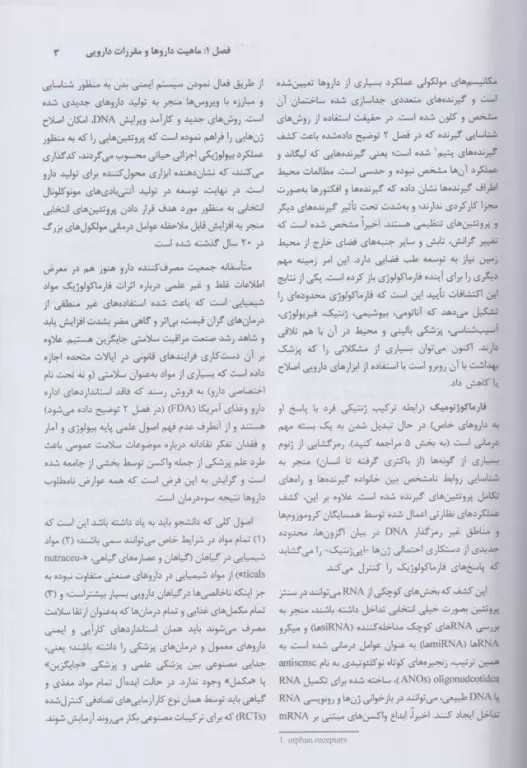 فصل ۱: ماهیت داروها و مقررات دارویی ۳
مکانیسم‌های مولکولی عملکرد بسیاری از داروها تعیین‌شده
است و گیرنده‌های متعددی جداسازی شده ساختمان آن
مشخص و کلون شده است. در حقیقت استفاده از روش‌های
شناسایی گیرنده که در فصل ۲ توضیح داده‌شده باعث کشف
گیرنده‌های یتیم۱ شده است؛ یعنی گیرنده‌هایی که لیگاند و
عملکرد آن‌ها مشخص نبوده و حدسی است. مطالعات محیط
اطراف گیرنده‌ها نشان داده که گیرنده‌ها و افکتورها به‌صورت
مجزا کارکردی ندارند؛ و به‌شدت تحت تأثیر گیرنده‌های دیگر
و پروتئین‌های تنظیمی هستند. اخیراً مشخص شده است که
تغییر گرانش، تابش و سایر جنبه‌های فضای خارج از محیط
زمین نیاز به توسعه طب فضایی دارد. این امر زمینه مهم
دیگری را برای آینده فارماکولوژی باز کرده است. یکی از نتایج
این اکتشافات تأیید این است که فارماکولوژی محدوده‌ای را
تشکیل می‌دهد که آناتومی، بیوشیمی، ژنتیک، فیزیولوژی،
آسیب‌شناسی، پزشکی بالینی و محیط در آن با هم تلاقی
دارند. اکنون می‌توان بسیاری از مشکلاتی را که پزشک
بهداشت با آن روبرو است با استفاده از ابزارهای دارویی اصلاح
یا کاهش داد.
فارماکوژنومیک (رابطه ترکیب ژنتیکی فرد با پاسخ او
به داروهای خاص) در حال تبدیل شدن به یک بسته مهم
درمانی است (به بخش ۵ مراجعه کنید). رمزگشایی از ژنوم
بسیاری از گونه‌ها (از باکتری گرفته تا انسان) منجر به
شناسایی روابط نامشخص بین خانواده گیرنده‌ها و راه‌های
تکامل پروتئین‌های گیرنده شده است. علاوه بر این، کشف
عملکردهای نظارتی اعمال شده توسط همسایگان کروموزوم‌ها
و مناطق غیر رمزگذار DNA در بیان اگزون‌ها، محدوده
جدیدی از دستکاری احتمالی ژن‌ها «اپی‌ژنتیک» را می‌گشاید
که پاسخ‌های فارماکولوژیک را کنترل می‌کند.
این کشف که بخش‌های کوچکی از RNA می‌توانند در سنتز
پروتئین بصورت خیلی انتخابی تداخل داشته باشند، منجر به
بررسی RNAهای کوچک مداخله‌کننده (siRNAها) و میکرو
RNAها (miRNAها) به عنوان عوامل درمانی شده است. به
همین ترتیب، زنجیره‌های کوتاه نوکلئوتیدی به نام antisense
oligonucleotides (ANOs)، ساخته شده برای تکمیل RNA
یا DNA طبیعی، می‌توانند در بازخوانی ژن‌ها و رونویسی RNA
تداخل ایجاد کنند. اخیراً، ابداع واکسن‌های مبتنی بر mRNA
1. orphan receptors
از طریق فعال نمودن سیستم ایمنی بدن به منظور شناسایی
و مبارزه با ویروس‌ها منجر به تولید داروهای جدیدی شده
است. روش‌های جدید و کارآمد ویرایش DNA، امکان اصلاح
ژن‌هایی را فراهم نموده است که پروتئین‌هایی را که به منظور
عملکرد بیولوژیکی اجزائی حیاتی محسوب می‌گردند، کدگذاری
می‌کنند، که نشان‌دهنده ابزاری محول‌کننده برای تولید دارو
است. در نهایت، توسعه در تولید آنتی‌بادی‌های مونوکلونال
انتخابی به منظور مورد هدف قرار دادن پروتئین‌های انتخابی
منجر به افزایش قابل ملاحظه عوامل درمانی مولکول‌های بزرگ
در ۲۰ سال گذشته شده است.
متأسفانه جمعیت مصرف‌کننده دارو هنوز هم در معرض
اطلاعات غلط و غیر علمی درباره اثرات فارماکولوژیک مواد
شیمیایی است که باعث شده استفاده‌های غیر منطقی از
درمان‌های گران قیمت، بی‌اثر و گاهی مضر بشدت افزایش یابد
و شاهد رشد صنعت مراقبت سلامتی جایگزین هستیم. علاوه
بر آن دست‌کاری فرایندهای قانونی در ایالات متحده اجازه
داده است که بسیاری از مواد به‌عنوان سلامتی (و نه تحت نام
اختصاصی دارو) به فروش رسند که فاقد استانداردهای اداره
دارو وغذای آمریکا (FDA) (در فصل ۲ توضیح داده می‌شود)
هستند و از آنطرف عدم فهم اصول علمی پایه بیولوژی و آمار
و فقدان تفکر نقادانه درباره موضوعات سلامت عمومی باعث
طرد علم پزشکی از جمله واکسن توسط بخشی از جامعه شده
است و گرایش به این فرض است که همه عوارض نامطلوب
داروها نتیجه سوءدرمان است.
اصول کلی که دانشجو باید به یاد داشته باشد این است که
(۱) تمام مواد در شرایط خاص می‌توانند سمی باشند؛ (۲) مواد
شیمیایی در گیاهان (گیاهان و عصاره‌های گیاهی، «nutraceu-
ticals») از مواد شیمیایی در داروهای صنعتی متفاوت نبوده به
جز اینکه ناخالصی‌ها در گیاهان دارویی بسیار بیشتراست؛ و (۳)
تمام مکمل‌های غذایی و تمام درمان‌ها که به‌عنوان ارتقا سلامت
مصرف می‌شوند باید همان استانداردهای کارآیی و ایمنی
داروهای معمول و درمان‌های پزشکی را داشته باشند؛ یعنی،
جدایی مصنوعی بین پزشکی علمی و پزشکی «جایگزین»
یا «مکمل» وجود ندارد. در حالت ایده‌آل تمام مواد مغذی و
گیاهی باید توسط همان نوع کارآزمایی‌های تصادفی کنترل‌شده
(RCTs) که برای ترکیبات مصنوعی بکار می‌روند آزمایش شوند.